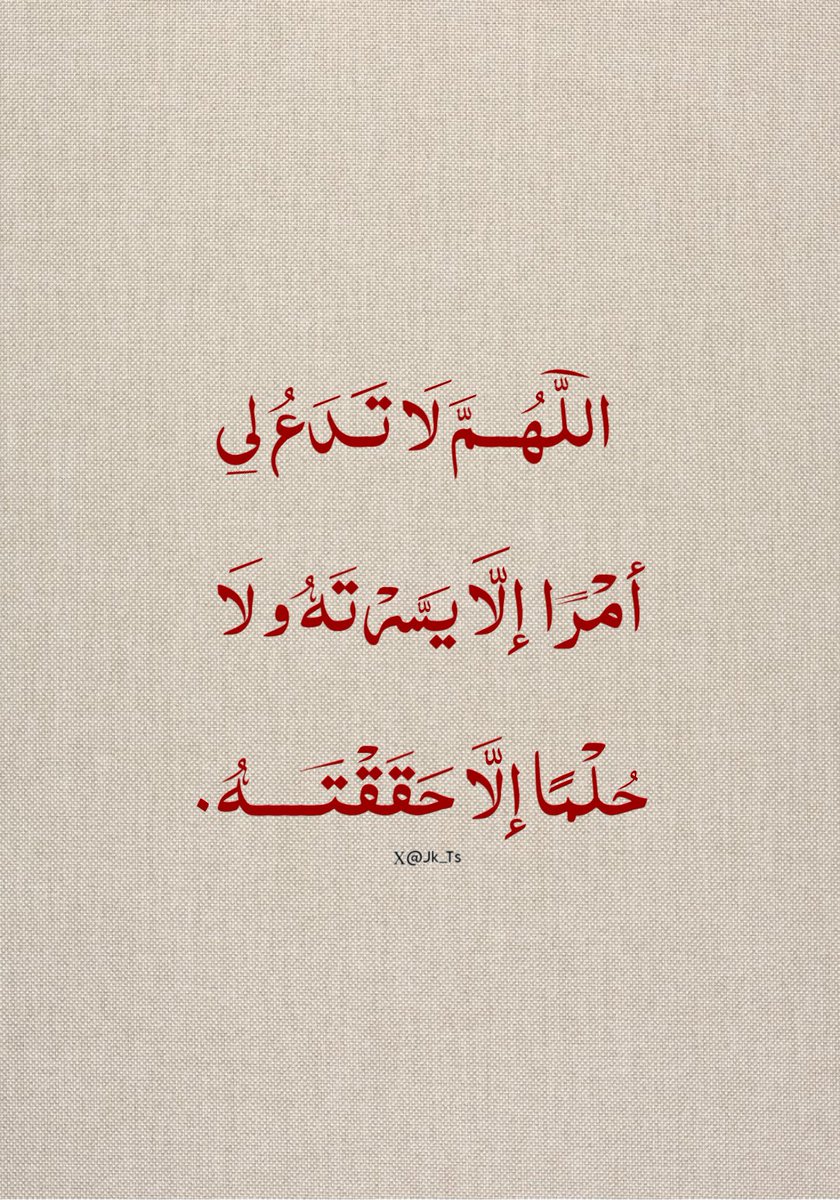 اللَّهُمَّ لَا تَدَعُ لي
أمْرًا إلَّا يَسَّرْتَهُ ولَا
حُلْمًا إلَّا حَقَقْتَهُ.
X@Jk_Ts